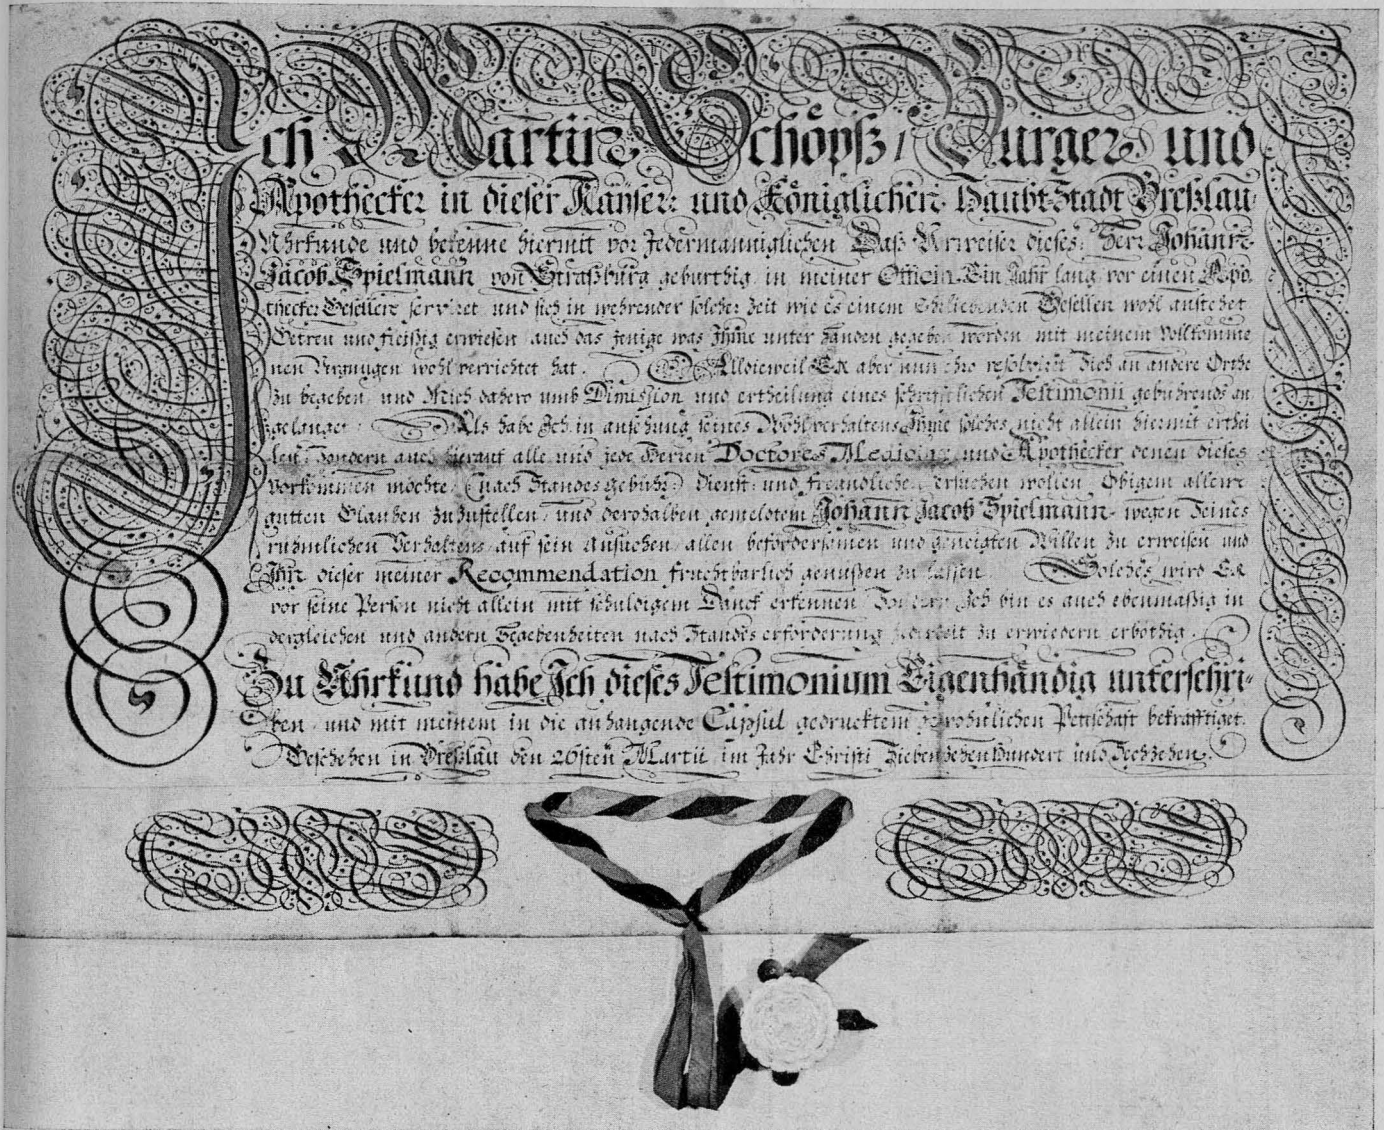 Ich Martin Schöpß / Bürger und
Apothecker in dieser Käyser: und Königlichen Haubt-Stadt Breßlau,
Uhrkunde und bekenne hiermit vor Jedermänniglichen Daß Vorweiser dieses, Herr Johann-
Jacob Spielmann von Straßburg gebürthig in meiner Officin Ein Jahr lang vor einen Apo-
thecker Gesellen serviret und sich in wehrender solcher Zeit wie es einem Gesellen wohl anstehet
Getreu und fleißig erwiesen auch das jenige was Ihme unter Händen gegeben worden mit meinem Vollkomme-
nen Vergnügen wohl verrichtet hat. Alldieweil Er aber nun resolviret Sich an andere Orthe
zu begeben und Mich dahero umb Dimission und ertheilung eines schrifftlichen Testimonii gebührends an
gelanget: Als habe Ich in ansehung seines Wohlverhaltens Ihme solches nicht allein hiermit erthei
len, Sondern auch hierauf alle und jede Herren Doctores Medicinae und Apothecker denen dieses
vorkommen möchte (nach Standes gebühr) dienst und freundlichen ersuchen wollen Obigem allen
gutten Glauben zuzustellen, und derohalben gemeldtem Johann Jacob Spielmann wegen Seines
rühmlichen Verhaltens auf sein Ansuchen allen befördersamen und geneigten Willen zu erweisen und
Ihn dieser meiner Recommendation fruchtbarlich genüßen zu lassen. Solches wird Er
vor seine Person nicht allein mit schuldigem Danck erkennen Sondern Ich bin es auch ebenmäßig in
dergleichen und andern Begebenheiten nach Standes erforderung jederzeit zu erwiedern erböthig.
Zu Uhrkund habe Ich dieses Testimonium Eigenhändig unterschri-
ben und mit meinem in die anhangende Capsul gedrucktem gewöhnlichen Pettschafft bekräfftiget.
Geschehen in Breßlau den 26sten Martii im Jahr Christi Siebenzehenhundert und Sechzehen.